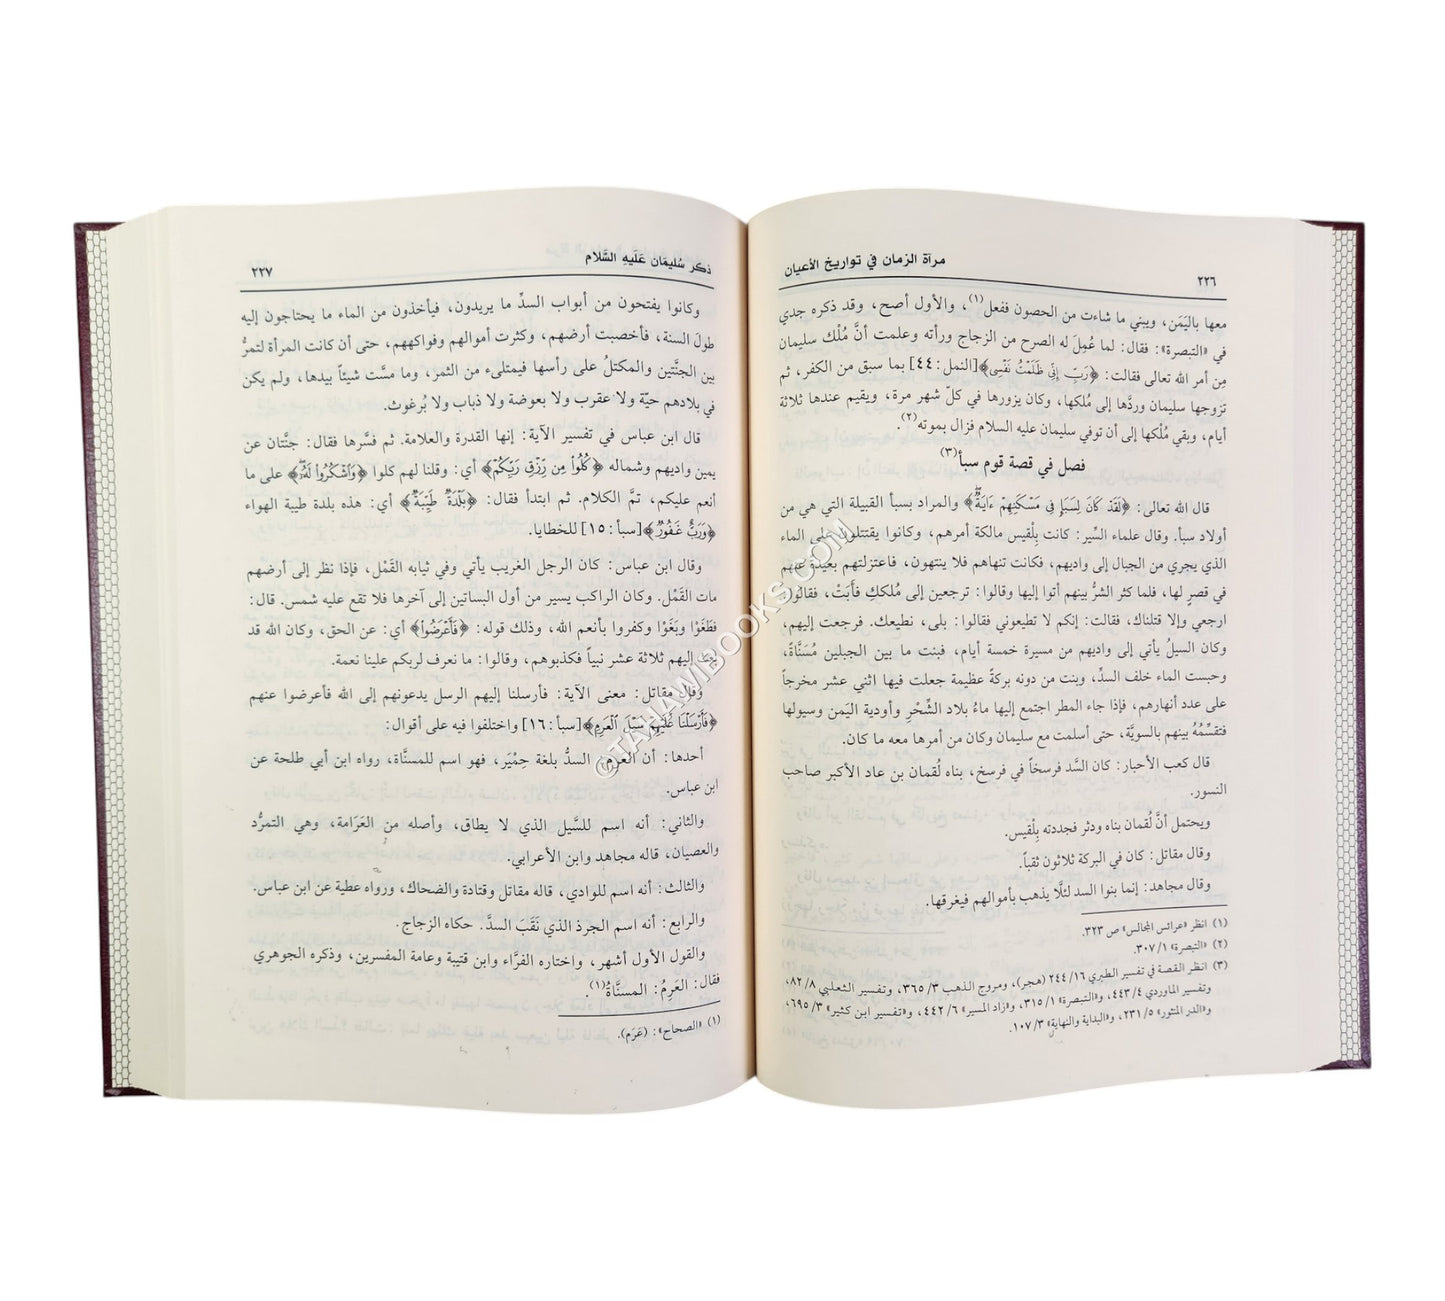 مرآة الزمان في تواريخ الأعيان
٢٢٦
معها باليَمَن، ويبني ما شاءت من الحصون ففعل(١)، والأول أصح، وقد ذكره جدي
في «التبصرة»: فقال: لما عُمِلَ له الصرح من الزجاج ورأته وعلمت أنَّ مُلْك سليمان
مِن أمر الله تعالى فقالت: ﴿رَبِّ إِنِّي ظَلَمْتُ نَفْسِي﴾[النمل: ٤٤] بما سبق من الكفر، ثم
تزوجها سليمان وردَّها إلى مُلكها، وكان يزورها في كلّ شهر مرة، ويقيم عندها ثلاثة
أيام، وبقي مُلْكها إلى أن توفي سليمان عليه السلام فزال بموته(٢).
فصل في قصة قوم سبأ(٣)
قال الله تعالى: ﴿لَقَدْ كَانَ لِسَبَإٍ فِي مَسْكَنِهِمْ ءَايَةٌ﴾ والمراد بسبأ القبيلة التي هي من
أولاد سبأ. وقال علماء السِّير: كانت بِلْقيس مالكة أمرهم، وكانوا يقتتلون على الماء
الذي يجري من الجبال إلى واديهم، فكانت تنهاهم فلا ينتهون، فاعتزلتهم بعيدة عنهم
في قصرٍ لها، فلما كثر الشرُّ بينهم أتوا إليها وقالوا: ترجعين إلى مُلككِ فأَبَتْ، فقالوا:
ارجعي وإلا قتلناك، فقالت: إنكم لا تطيعوني فقالوا: بلى، نطيعك. فرجعت إليهم،
وكان السيلُ يأتي إلى واديهم من مسيرة خمسة أيام، فبنت ما بين الجبلين مُسَنَّاةً،
وحبست الماء خلف السدِّ، وبنت من دونه بركةً عظيمة جعلت فيها اثني عشر مخرجاً
على عدد أنهارهم، فإذا جاء المطر اجتمع إليها ماءُ بلاد الشِّحْرِ وأودية اليَمن وسيولها
فتقسِّمُهُ بينهم بالسويَّة، حتى أسلمت مع سليمان وكان من أمرها معه ما كان.
قال كعب الأحبار: كان السَّد فرسخاً في فرسخ، بناه لُقمان بن عاد الأكبر صاحب
النسور.
ويحتمل أنَّ لُقمان بناه ودثر فجددته بِلْقيس.
وقال مقاتل: كان في البركة ثلاثون ثقباً.
وقال مجاهد: إنما بنوا السد لئلَّا يذهب بأموالهم فيغرقها.
(١) انظر «عرائس المجالس» ص ٣٢٣.
(٢) «التبصرة» ١/ ٣٠٧.
(٣) انظر القصة في تفسير الطبري ١٦/ ٢٤٤ (هجر)، ومروج الذهب ٣/ ٣٦٥، وتفسير الثعلبي ٨/ ٨٢،
وتفسير الماوردي ٤/ ٤٤٣، و«التبصرة» ١/ ٣١٥، و«زاد المسير» ٦/ ٤٤٢، و«تفسير ابن كثير» ٣/ ٦٩٥،
و«الدر المنثور» ٥/ ٢٣١، و«البداية والنهاية» ٣/ ١٠٧.
ذكر سُليمَان عَلَيهِ السَّلَام
٢٢٧
وكانوا يفتحون من أبواب السدِّ ما يريدون، فيأخذون من الماء ما يحتاجون إليه
طولَ السنة، فأخصبت أرضهم، وكثرت أموالهم وفواكههم، حتى أن كانت المرأة لتمرُّ
بين الجنَّتين والمكتلُ على رأسها فيمتلىء من الثمر، وما مسَّت شيئاً بيدها، ولم يكن
في بلادهم حيّة ولا عقرب ولا بعوضة ولا ذباب ولا بُرغوث.
قال ابن عباس في تفسير الآية: إنها القدرة والعلامة. ثم فسَّرها فقال: جنَّتان عن
يمين واديهم وشماله ﴿كُلُوا مِن رِّزْقِ رَبِّكُمْ﴾ أي: وقلنا لهم كلوا ﴿وَاشْكُرُوا لَهُ﴾ على ما
أنعم عليكم، تمَّ الكلام. ثم ابتدأ فقال: ﴿بَلْدَةٌ طَيِّبَةٌ﴾ أي: هذه بلدة طيبة الهواء
﴿وَرَبٌّ غَفُورٌ﴾[سبأ: ١٥] للخطايا.
وقال ابن عباس: كان الرجل الغريب يأتي وفي ثيابه القَمْل، فإذا نظر إلى أرضهم
مات القَمْل. وكان الراكب يسير من أول البساتين إلى آخرها فلا تقع عليه شمس. قال:
فطَغَوْا وبَغَوْا وكفروا بأنعم الله، وذلك قوله: ﴿فَأَعْرَضُوا﴾ أي: عن الحق، وكان الله قد
بعث إليهم ثلاثة عشر نبياً فكذبوهم، وقالوا: ما نعرف لربكم علينا نعمة.
وقال مقاتل: معنى الآية: فأرسلنا إليهم الرسل يدعونهم إلى الله فأعرضوا عنهم
﴿فَأَرْسَلْنَا عَلَيْهِمْ سَيْلَ الْعَرِمِ﴾[سبأ: ١٦] واختلفوا فيه على أقوال:
أحدها: أن العَرِمَ: السدُّ بلغة حِمْيَر، فهو اسم للمَسنَّاة، رواه ابن أبي طلحة عن
ابن عباس.
والثاني: أنه اسم للسَّيل الذي لا يطاق، وأصله من العَرَامة، وهي التمرُّد
والعصيان، قاله مجاهد وابن الأعرابي.
والثالث: أنه اسم للوادي، قاله مقاتل وقتادة والضحاك، ورواه عطية عن ابن عباس.
والرابع: أنه اسم الجرذ الذي نَقَبَ السدَّ. حكاه الزجاج.
والقول الأول أشهر، واختاره الفرَّاء وابن قتيبة وعامة المفسرين، وذكره الجوهري
فقال: العَرِمُ: المسنَّاةُ(١).
(١) «الصحاح»: (عَرَم).
©TAHAWIBOOKS.COM